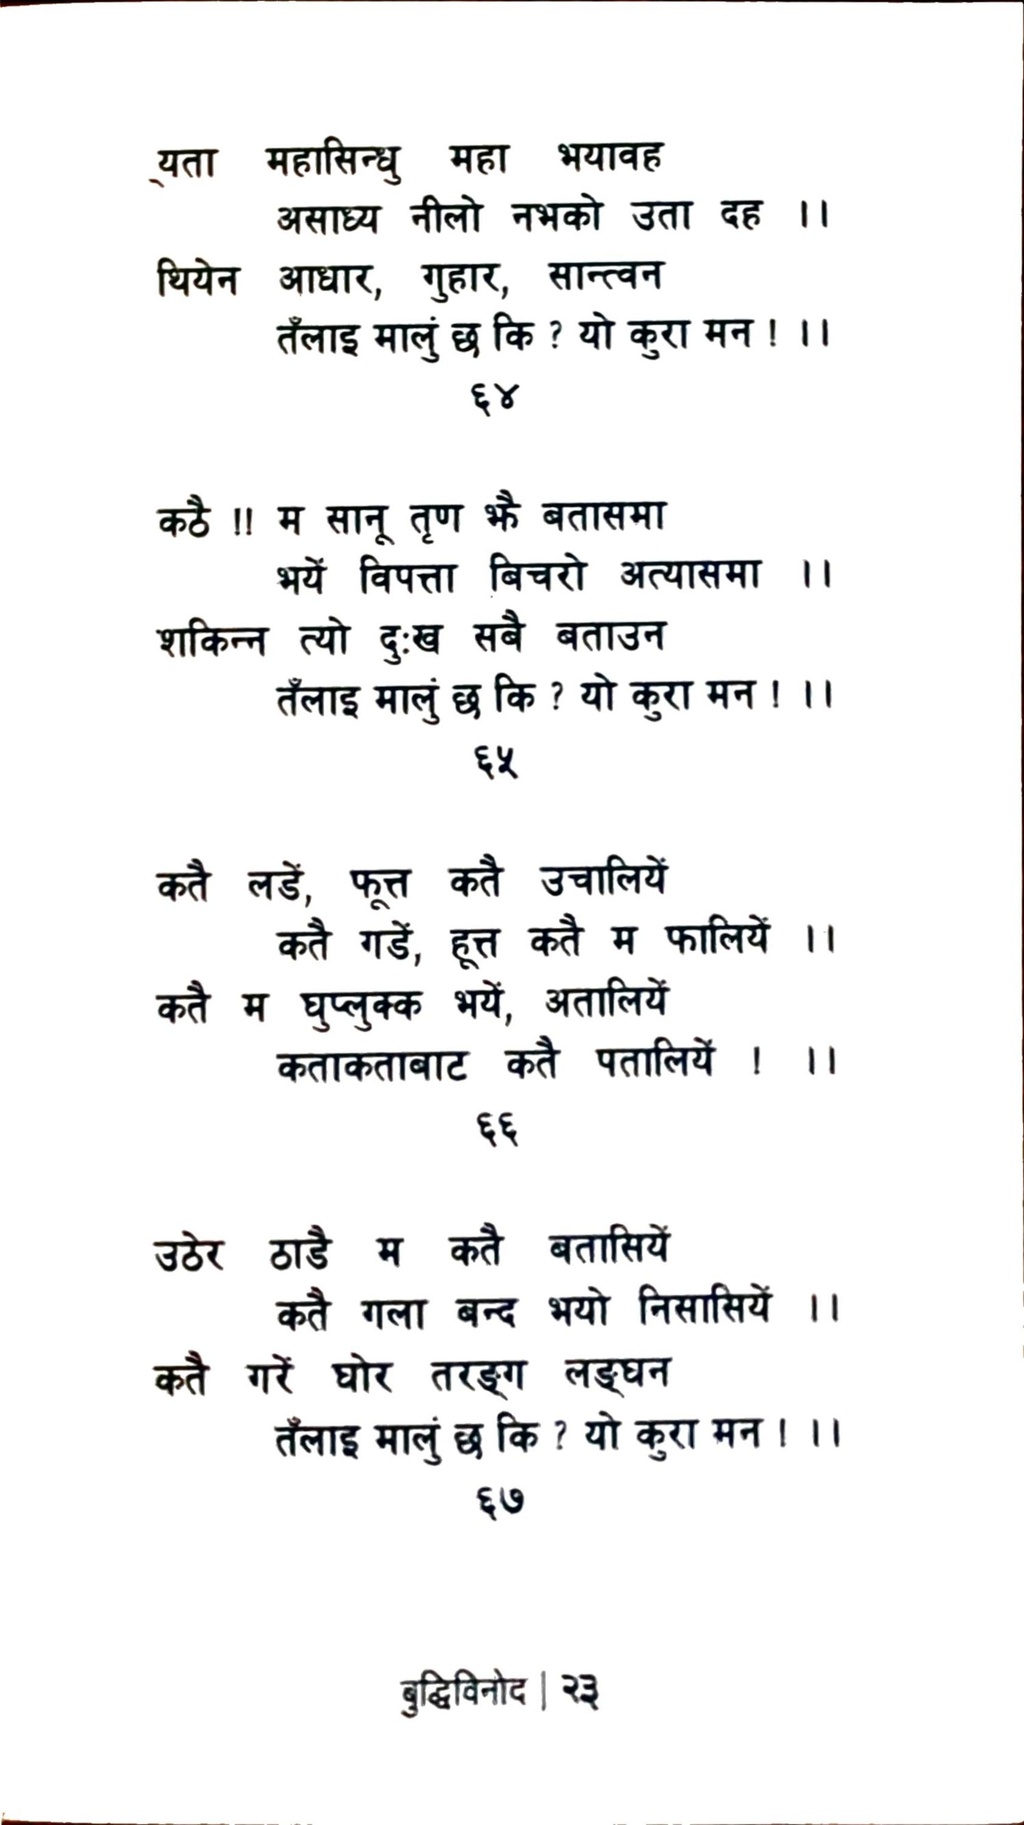 ्यता महासिन्धु महा भयावह
असाध्य नीलो नभको उता दह ।।
थियेन आधार, गुहार, सान्त्वन
तँलाइ मालुं छ कि ? यो कुरा मन ! ।।
६४
कठै !! म सानू तृण झै बतासमा
भयें विपत्ता बिचरो अत्यासमा ।।
शकिन्न त्यो दुःख सबै बताउन
तँलाइ मालुं छ कि ? यो कुरा मन ! ।।
६५
कतै लडें, फूत्त कतै उचालियें
कतै गडें, हूत्त कतै म फालियें ।।
कतै म घुप्लुक्क भयें, अतालियें
कताकताबाट कतै पतालियें ! ।।
६६
उठेर ठाडै म कतै बतासियें
कतै गला बन्द भयो निसासियें ।।
कतै गरें घोर तरङ्ग लङ्घन
तँलाइ मालुं छ कि ? यो कुरा मन ! ।।
६७
बुद्धिविनोद | २३